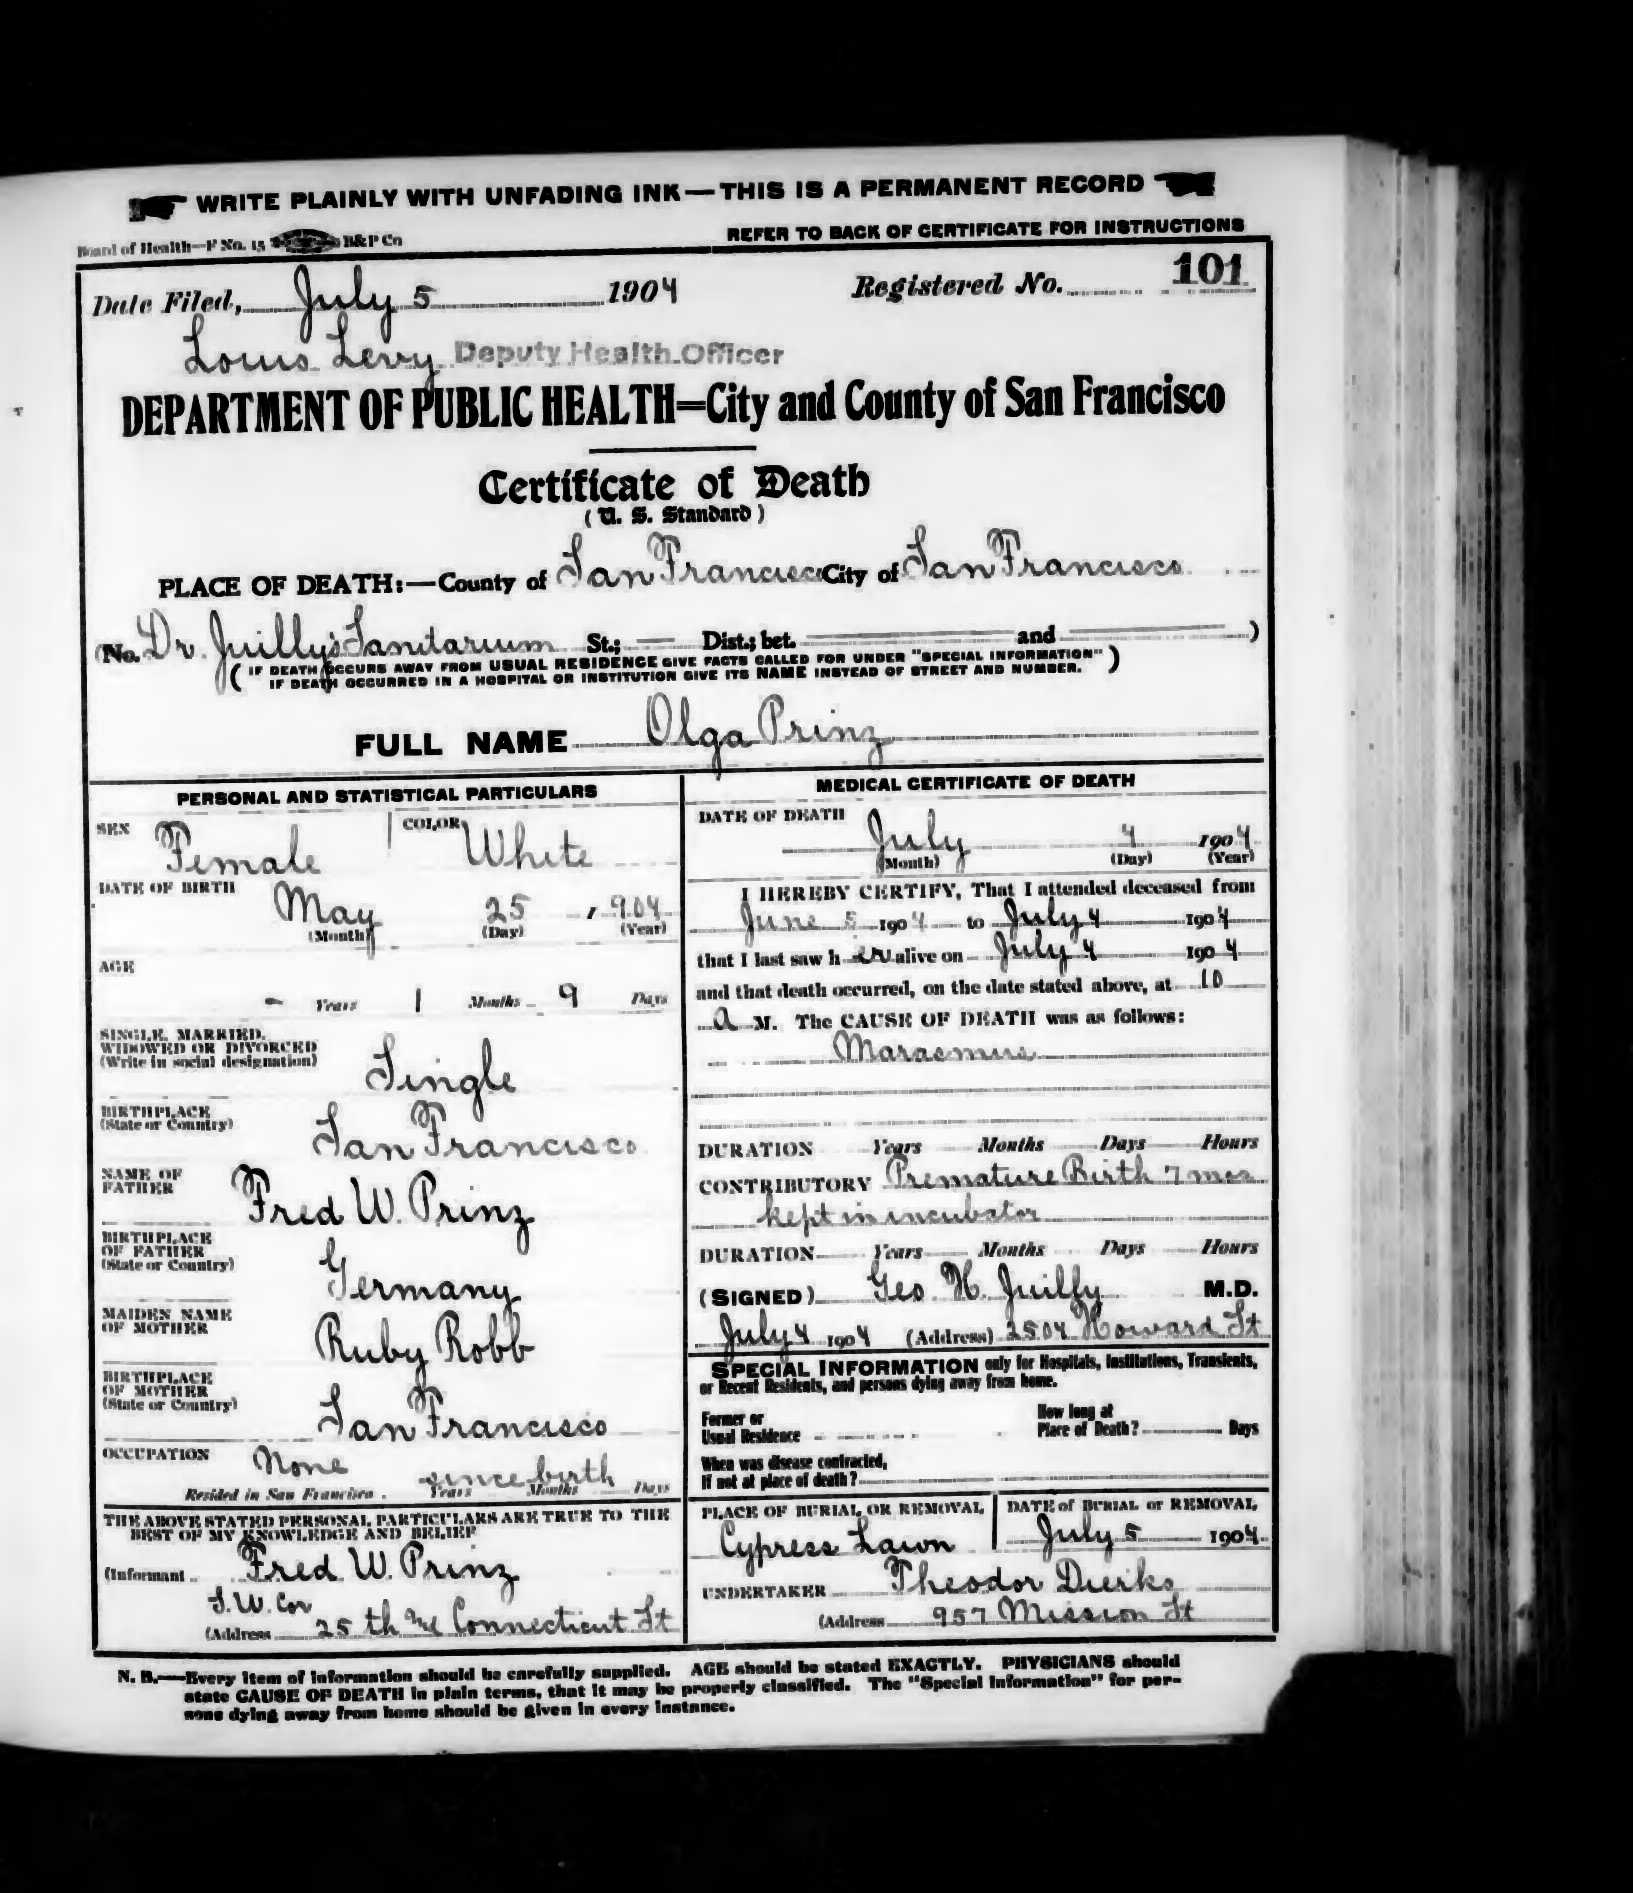 WRITE PLAINLY WITH UNFADING INK—THIS IS A PERMANENT RECORD
Board of Health—F No. 15 B&P Co
REFER TO BACK OF CERTIFICATE FOR INSTRUCTIONS
Date Filed, July 5 1904 Registered No. 101
Louis Levy Deputy Health Officer
DEPARTMENT OF PUBLIC HEALTH=City and County of San Francisco
Certificate of Death
(U. S. Standard)
PLACE OF DEATH:—County of San Francisco City of San Francisco
(No. Dr. Juilly's Sanitarium St.; Dist.; bet. and )
(IF DEATH OCCURS AWAY FROM USUAL RESIDENCE GIVE FACTS CALLED FOR UNDER "SPECIAL INFORMATION"
IF DEATH OCCURRED IN A HOSPITAL OR INSTITUTION GIVE ITS NAME INSTEAD OF STREET AND NUMBER.)
FULL NAME Olga Prinz
PERSONAL AND STATISTICAL PARTICULARS
SEX Female COLOR White
DATE OF BIRTH May 25, 1904
(Month) (Day) (Year)
AGE
- Years 1 Months 9 Days
SINGLE, MARRIED,
WIDOWED OR DIVORCED
(Write in social designation) Single
BIRTHPLACE
(State or Country) San Francisco
NAME OF
FATHER Fred W. Prinz
BIRTHPLACE
OF FATHER
(State or Country) Germany
MAIDEN NAME
OF MOTHER Ruby Robb
BIRTHPLACE
OF MOTHER
(State or Country) San Francisco
OCCUPATION None
Resided in San Francisco since birth Years Months Days
THE ABOVE STATED PERSONAL PARTICULARS ARE TRUE TO THE
BEST OF MY KNOWLEDGE AND BELIEF
(Informant Fred W. Prinz
S.W. Cor
(Address 25th and Connecticut St
MEDICAL CERTIFICATE OF DEATH
DATE OF DEATH
July 4 1904
(Month) (Day) (Year)
I HEREBY CERTIFY, That I attended deceased from
June 5 1904 to July 4 1904
that I last saw her alive on July 4 1904
and that death occurred, on the date stated above, at 10
a M. The CAUSE OF DEATH was as follows:
Marasmus
DURATION Years Months Days Hours
CONTRIBUTORY Premature Birth 7 mos
kept in incubator
DURATION Years Months Days Hours
(SIGNED) Geo. H. Juilly M.D.
July 4 1904 (Address) 2504 Howard St
SPECIAL INFORMATION only for Hospitals, Institutions, Transients,
or Recent Residents, and persons dying away from home.
Former or
Usual Residence
How long at
Place of Death? Days
When was disease contracted,
If not at place of death?
PLACE OF BURIAL OR REMOVAL DATE of BURIAL or REMOVAL
Cypress Lawn July 5 1904
UNDERTAKER Theodor Dierks
(Address 957 Mission St
N. B.—Every item of information should be carefully supplied. AGE should be stated EXACTLY. PHYSICIANS should
state CAUSE OF DEATH in plain terms, that it may be properly classified. The "Special Information" for per-
sons dying away from home should be given in every instance.